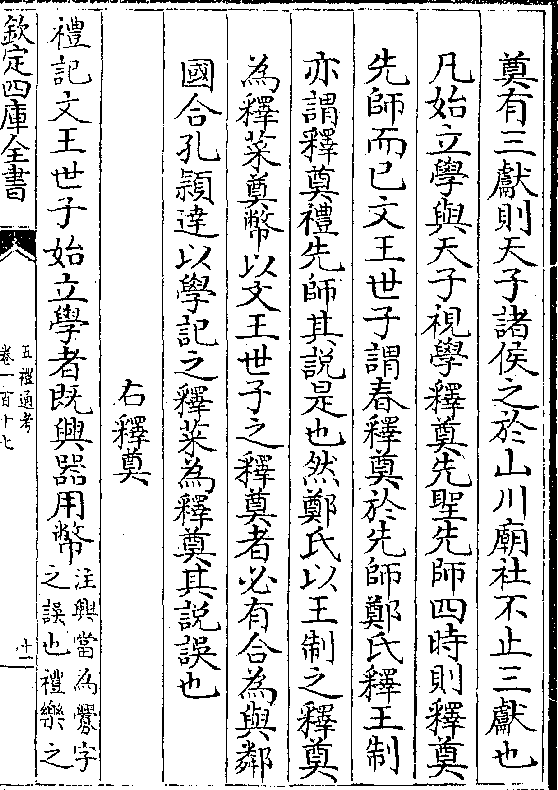 奠有三獻則天子諸侯之於山川廟社不止三獻也
凡始立學與天子視學釋奠先聖先師四時則釋奠
先師而已文王世子謂春釋奠於先師鄭氏釋王制
亦謂釋奠禮先師其說是也然鄭氏以王制之釋奠
為釋菜奠幣以文王世子之釋奠者必有合為與鄰
國合孔頴達以學記之釋菜為釋奠其說誤也
右釋奠
禮記文王世子始立學者既興器用幣注興當為釁字
之誤也禮樂之
欽定四庫全書
五禮通考
卷一百十七
十一